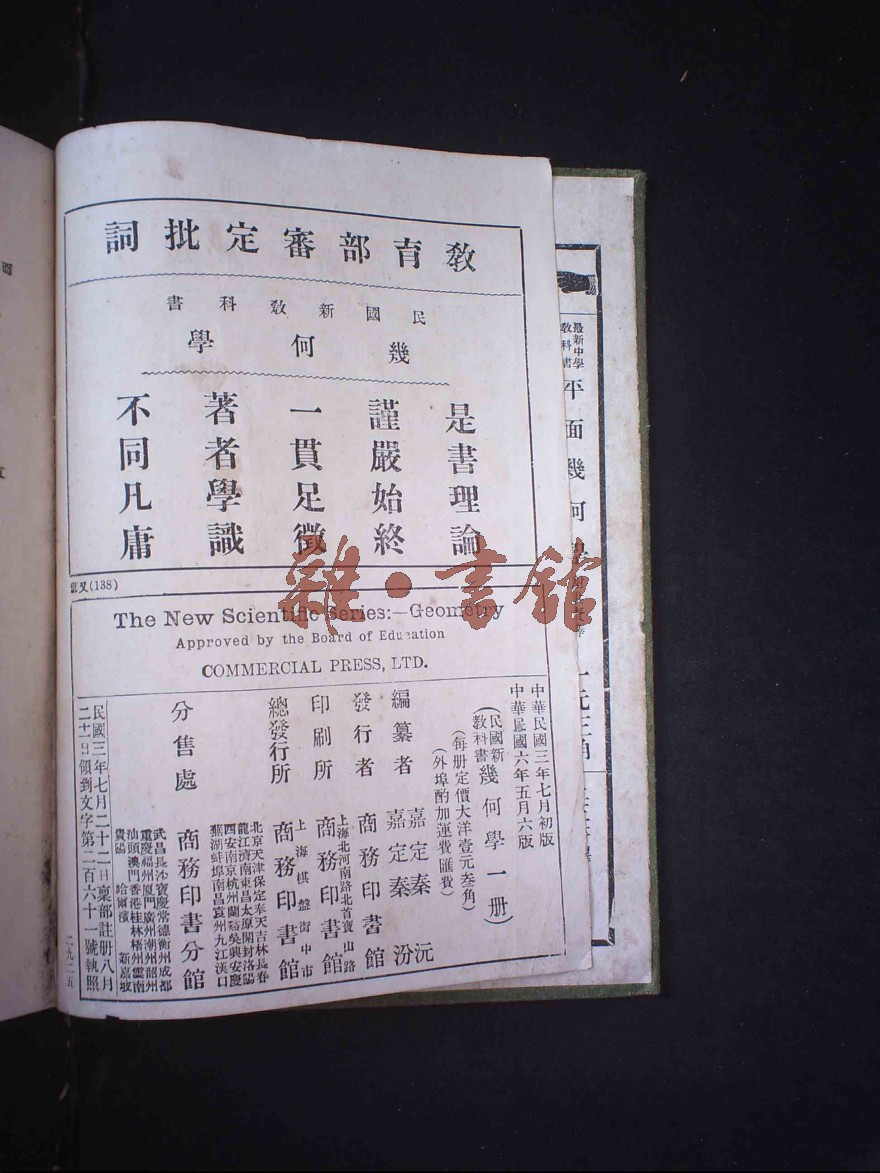 教育部審定批詞
民國新教科書
幾何學
是書理論
謹嚴始終
一貫足徵
著者學識
不同凡庸
(138)
The New Scientific Series:—Geometry
Approved by the Board of Education
COMMERCIAL PRESS, LTD.
中華民國三年七月初版
中華民國六年五月六版
(民國新教科書幾何學一册)
(每册定價大洋壹元叁角)
(外埠酌加運費匯費)
編纂者 嘉定秦沅 嘉定秦汾
發行者 商務印書館
印刷所 上海北河南路北首寶山路 商務印書館
總發行所 上海棋盤街中市 商務印書館
北京天津保定奉天吉林長春
龍江濟南東昌太原開封洛陽
西安南京杭州蘭谿吳興安慶
蕪湖蚌埠南昌袁州九江漢口
分售處 商務印書分館
武昌長沙寶慶常德衡州成都
重慶福州厦門廣州潮州韶州
汕頭澳門香港桂林梧州雲南
貴陽 哈爾濱 新嘉坡
民國三年七月二十二日稟部註册八月
二十一日領到文字第二百六十一號執照
二九二五
最新中學教科書
平面幾何
雜·書館